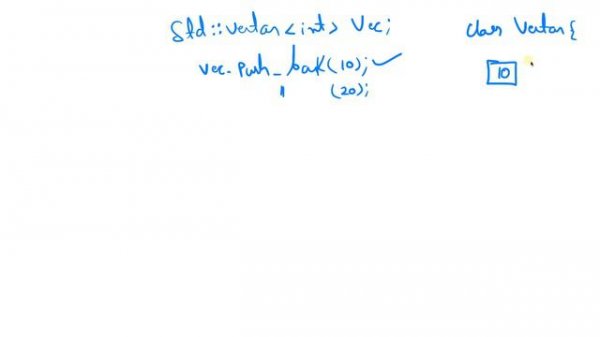 Std::vector<int> Vec;
vec.push_back(10); ✓
" (20);
class Vector{
10